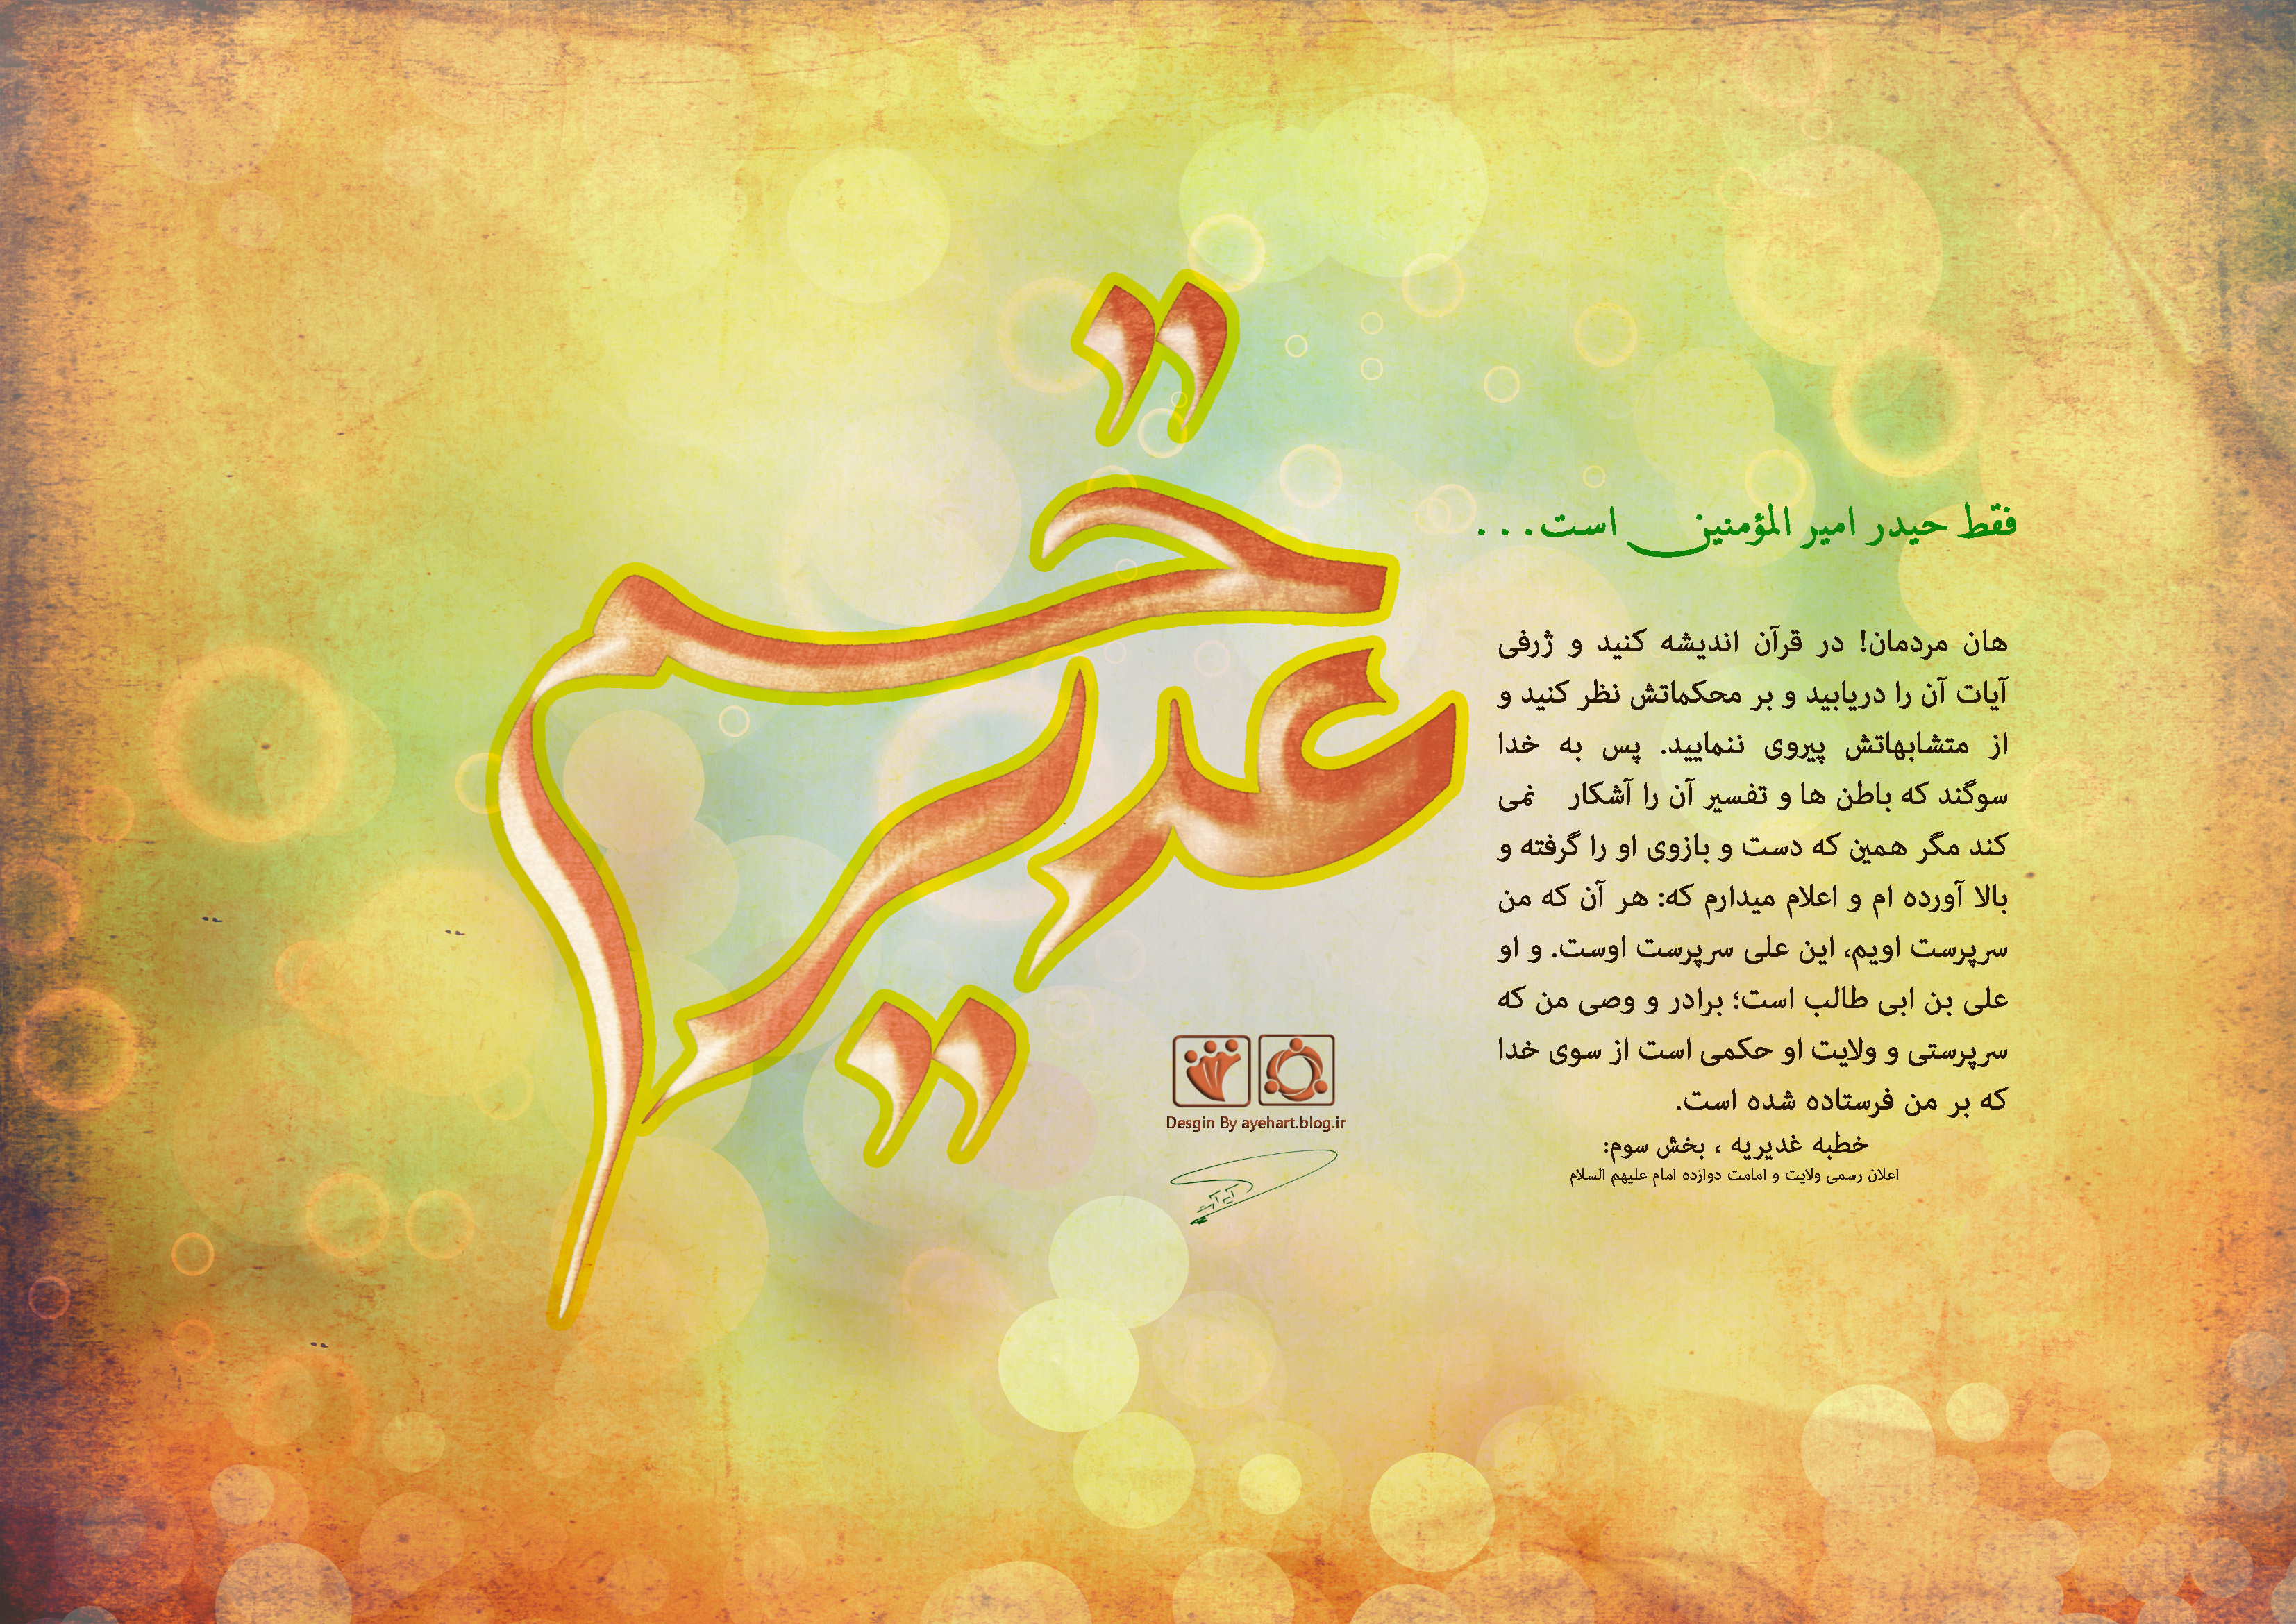 غدیر خم
فقط حیدر امیر المؤمنین است...
هان مردمان! در قرآن اندیشه کنید و ژرفی
آیات آن را دریابید و بر محکماتش نظر کنید و
از متشابهاتش پیروی ننمایید. پس به خدا
سوگند که باطن ها و تفسیر آن را آشکار نمی
کند مگر همین که دست و بازوی او را گرفته و
بالا آورده ام و اعلام میدارم که: هر آن که من
سرپرست اویم، این علی سرپرست اوست. و او
علی بن ابی طالب است؛ برادر و وصی من که
سرپرستی و ولایت او حکمی است از سوی خدا
که بر من فرستاده شده است.
خطبه غدیریه ، بخش سوم:
اعلان رسمی ولایت و امامت دوازده امام علیهم السلام
Desgin By ayehart.blog.ir